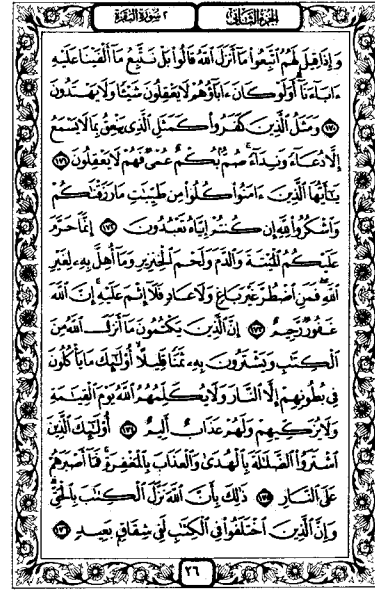 الجزء الثاني
٢ سورة البقرة
وَإِذَا قِيلَ لَهُمُ ٱتَّبِعُوا۟ مَآ أَنزَلَ ٱللَّهُ قَالُوا۟ بَلْ نَتَّبِعُ مَآ أَلْفَيْنَا عَلَيْهِ
ءَابَآءَنَآ أَوَلَوْ كَانَ ءَابَآؤُهُمْ لَا يَعْقِلُونَ شَيْـًٔا وَلَا يَهْتَدُونَ
١٧٠ وَمَثَلُ ٱلَّذِينَ كَفَرُوا۟ كَمَثَلِ ٱلَّذِى يَنْعِقُ بِمَا لَا يَسْمَعُ
إِلَّا دُعَآءً وَنِدَآءً صُمٌّۢ بُكْمٌ عُمْىٌ فَهُمْ لَا يَعْقِلُونَ ١٧١
يَـٰٓأَيُّهَا ٱلَّذِينَ ءَامَنُوا۟ كُلُوا۟ مِن طَيِّبَـٰتِ مَا رَزَقْنَـٰكُمْ
وَٱشْكُرُوا۟ لِلَّهِ إِن كُنتُمْ إِيَّاهُ تَعْبُدُونَ ١٧٢ إِنَّمَا حَرَّمَ
عَلَيْكُمُ ٱلْمَيْتَةَ وَٱلدَّمَ وَلَحْمَ ٱلْخِنزِيرِ وَمَآ أُهِلَّ بِهِۦ لِغَيْرِ
ٱللَّهِ فَمَنِ ٱضْطُرَّ غَيْرَ بَاغٍ وَلَا عَادٍ فَلَآ إِثْمَ عَلَيْهِ إِنَّ ٱللَّهَ
غَفُورٌ رَّحِيمٌ ١٧٣ إِنَّ ٱلَّذِينَ يَكْتُمُونَ مَآ أَنزَلَ ٱللَّهُ مِنَ
ٱلْكِتَـٰبِ وَيَشْتَرُونَ بِهِۦ ثَمَنًا قَلِيلًا أُو۟لَـٰٓئِكَ مَا يَأْكُلُونَ
فِى بُطُونِهِمْ إِلَّا ٱلنَّارَ وَلَا يُكَلِّمُهُمُ ٱللَّهُ يَوْمَ ٱلْقِيَـٰمَةِ
وَلَا يُزَكِّيهِمْ وَلَهُمْ عَذَابٌ أَلِيمٌ ١٧٤ أُو۟لَـٰٓئِكَ ٱلَّذِينَ
ٱشْتَرَوُا۟ ٱلضَّلَـٰلَةَ بِٱلْهُدَىٰ وَٱلْعَذَابَ بِٱلْمَغْفِرَةِ فَمَآ أَصْبَرَهُمْ
عَلَى ٱلنَّارِ ١٧٥ ذَٰلِكَ بِأَنَّ ٱللَّهَ نَزَّلَ ٱلْكِتَـٰبَ بِٱلْحَقِّ
وَإِنَّ ٱلَّذِينَ ٱخْتَلَفُوا۟ فِى ٱلْكِتَـٰبِ لَفِى شِقَاقٍۭ بَعِيدٍ ١٧٦
٢٦